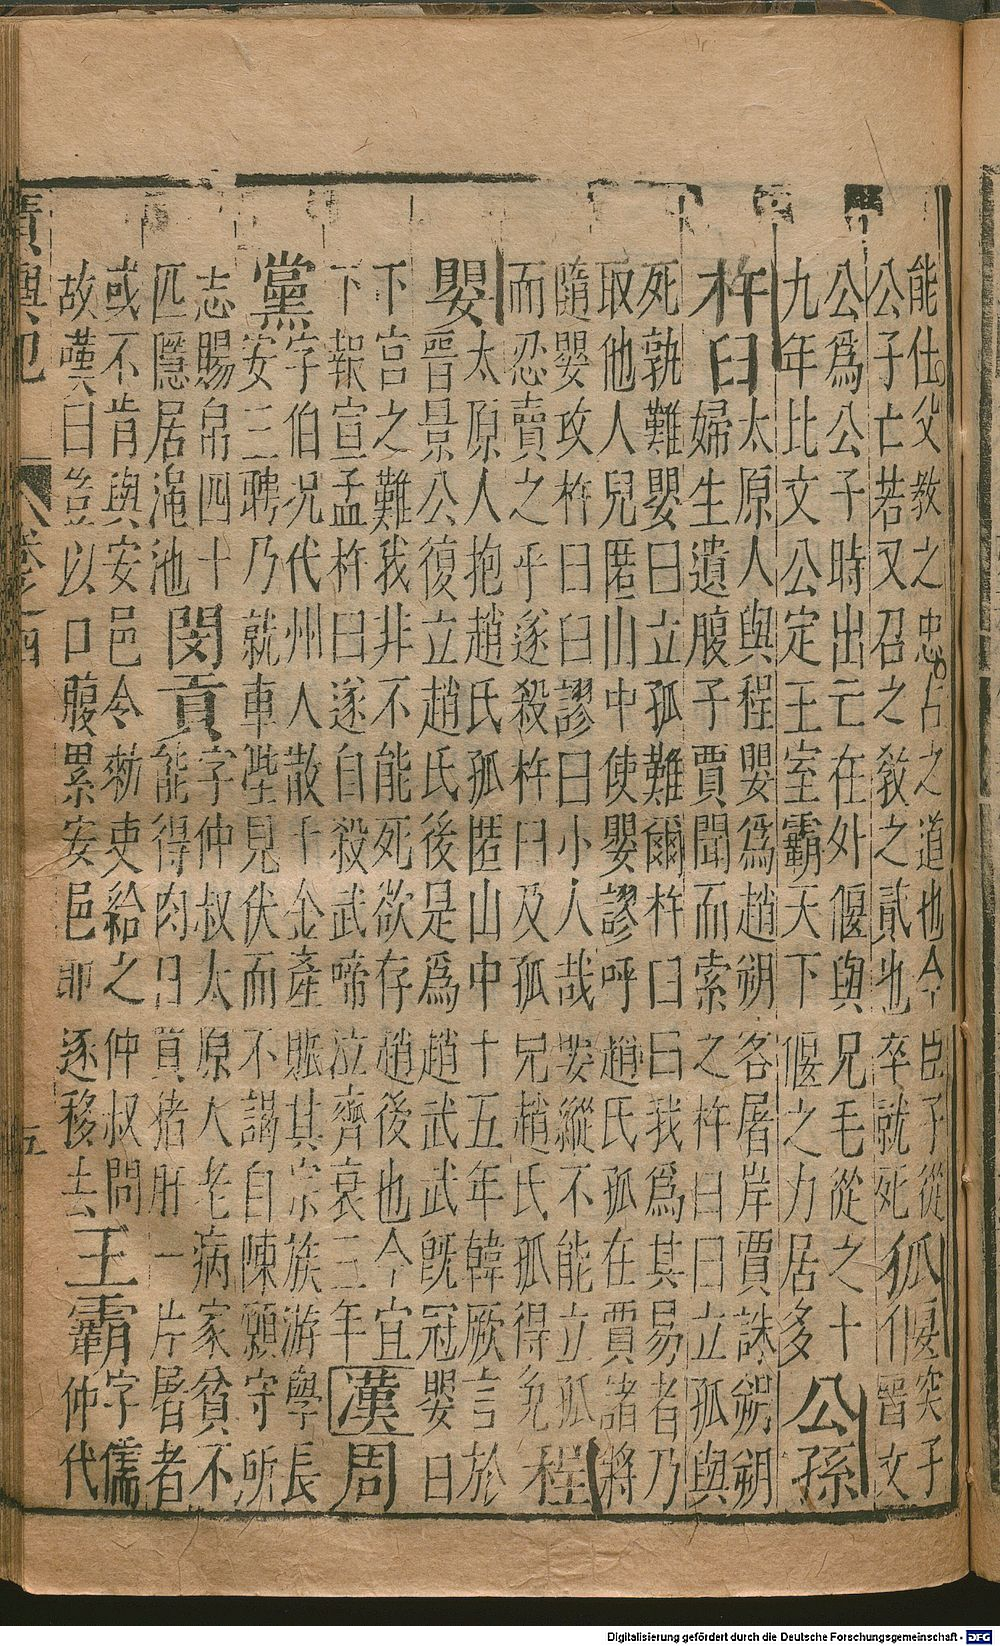 能仕父教之忠古之道也今臣子從
公子亡若又召之教之貳也卒就死
狐偃
突子
晋文
公爲公子時出亡在外偃與兄毛從之十
九年比文公定王室霸天下偃之力居多
公孫
杵臼
太原人與程嬰爲趙朔客屠岸賈誅朔朔
婦生遺腹子賈聞而索之杵臼曰立孤與
死孰難嬰曰立孤難爾杵臼曰我爲其易者乃
取他人兒匿山中使嬰謬呼趙氏孤在賈諸將
隨嬰攻杵臼臼謬曰小人哉嬰縱不能立孤
而忍賣之乎遂殺杵臼及孤兒趙氏孤得免
程
嬰
太原人抱趙氏孤匿山中十五年韓厥言於
晉景公復立趙氏後是爲趙武武旣冠嬰曰
下宮之難我非不能死欲存趙後也今宜
下報宣孟杵臼遂自殺武啼泣齊衰三年
漢周
黨
字伯况代州人散千金產賑其宗族游學長
安三聘乃就車陛見伏而不謁自陳願守所
志賜帛四十
匹隱居澠池
閔貢
字仲叔太原人老病家貧不
能得肉日買猪肝一片屠者
或不肯與安邑令勑吏給之仲叔問
故嘆曰豈以口腹累安邑耶遂移去
王霸
字儒
仲代
廣輿記 卷之四 五
Digitalisierung gefördert durch die Deutsche Forschungsgemeinschaft - DFG